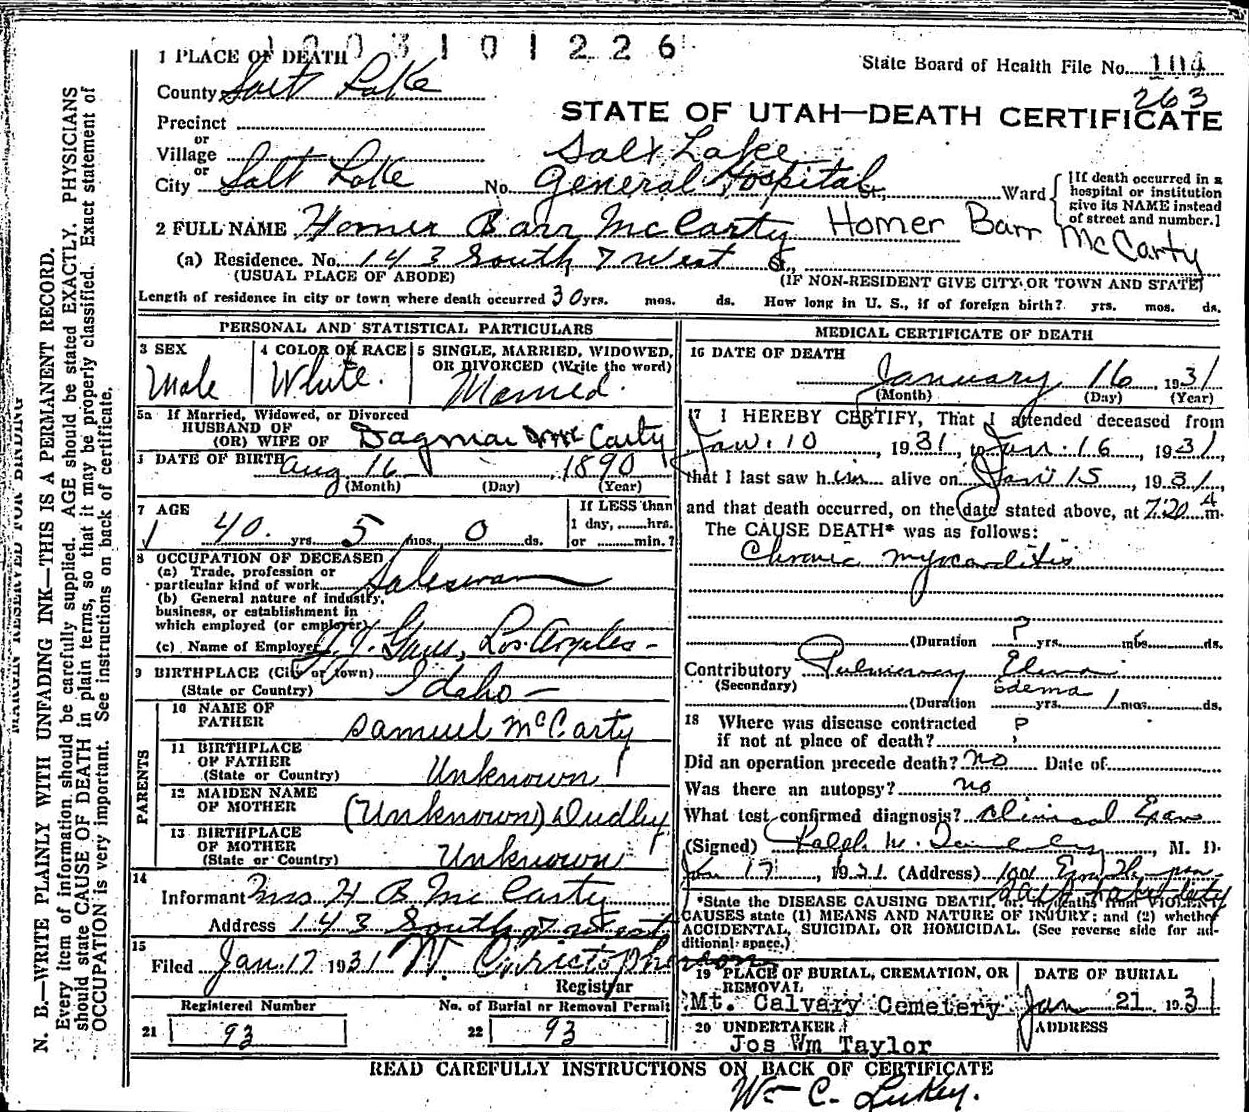 1003101226
1 PLACE OF DEATH
State Board of Health File No. 104
County Salt Lake
263
STATE OF UTAH—DEATH CERTIFICATE
Precinct
or
Village
or
City Salt Lake No. Salt Lake General Hospital St., Ward
[If death occurred in a
hospital or institution
give its NAME instead
of street and number.]
2 FULL NAME Homer Barr McCarty Homer Barr McCarty
(a) Residence. No. 143 South 7 West St.,
(USUAL PLACE OF ABODE) (IF NON-RESIDENT GIVE CITY OR TOWN AND STATE)
Length of residence in city or town where death occurred 30 yrs. mos. ds. How long in U. S., if of foreign birth? yrs. mos. ds.
PERSONAL AND STATISTICAL PARTICULARS
3 SEX
Male
4 COLOR OR RACE
White.
5 SINGLE, MARRIED, WIDOWED,
OR DIVORCED (Write the word)
Married.
5a If Married, Widowed, or Divorced
HUSBAND OF
(OR) WIFE OF Dagmar McCarty
DATE OF BIRTH Aug 16 1890
(Month) (Day) (Year)
7 AGE
40 yrs. 5 mos. 0 ds.
If LESS than
1 day, hrs.
or min.?
8 OCCUPATION OF DECEASED
(a) Trade, profession or
particular kind of work Salesman
(b) General nature of industry,
business, or establishment in
which employed (or employer)
(c) Name of Employer Los Angeles -
9 BIRTHPLACE (City or town)
(State or Country) Idaho -
PARENTS
10 NAME OF
FATHER Samuel McCarty
11 BIRTHPLACE
OF FATHER
(State or Country) Unknown
12 MAIDEN NAME
OF MOTHER (Unknown) Dudley
13 BIRTHPLACE
OF MOTHER
(State or Country) Unknown
14
Informant Mrs H B McCarty
Address 143 South 7 West
15
Filed Jan 17 1931 W. Christopherson
Registrar
Registered Number
21 93
No. of Burial or Removal Permit
22 93
MEDICAL CERTIFICATE OF DEATH
16 DATE OF DEATH
January 16 1931
(Month) (Day) (Year)
17 I HEREBY CERTIFY, That I attended deceased from
Jan. 10, 1931, to Jan. 16 1931,
that I last saw him alive on Jan 15, 1931,
and that death occurred, on the date stated above, at 7:20 A m.
The CAUSE DEATH* was as follows:
Chronic myocarditis
(Duration ? yrs. mos. ds.
Contributory Pulmonary Edema
(Secondary) edema
(Duration yrs. 1 mos. ds.
18 Where was disease contracted
if not at place of death? ?
Did an operation precede death? no Date of
Was there an autopsy? no
What test confirmed diagnosis? Clinical Exam
(Signed) Ralph W. , M. D.
Jan 17, 1931 (Address) 1001
Salt Lake City
*State the DISEASE CAUSING DEATH, or, deaths from VIOLENT
CAUSES state (1) MEANS AND NATURE OF INJURY; and (2) whether
ACCIDENTAL, SUICIDAL OR HOMICIDAL. (See reverse side for ad-
ditional space.)
19 PLACE OF BURIAL, CREMATION, OR
REMOVAL
Mt. Calvary Cemetery
DATE OF BURIAL
Jan 21 1931
20 UNDERTAKER
Jos Wm Taylor
ADDRESS
READ CAREFULLY INSTRUCTIONS ON BACK OF CERTIFICATE
Wm C. Lukey.
MARGIN RESERVED FOR BINDING
N. B.—WRITE PLAINLY WITH UNFADING INK—THIS IS A PERMANENT RECORD.
Every item of information should be carefully supplied. AGE should be stated EXACTLY. PHYSICIANS
should state CAUSE OF DEATH in plain terms, so that it may be properly classified. Exact statement of
OCCUPATION is very important. See instructions on back of certificate.